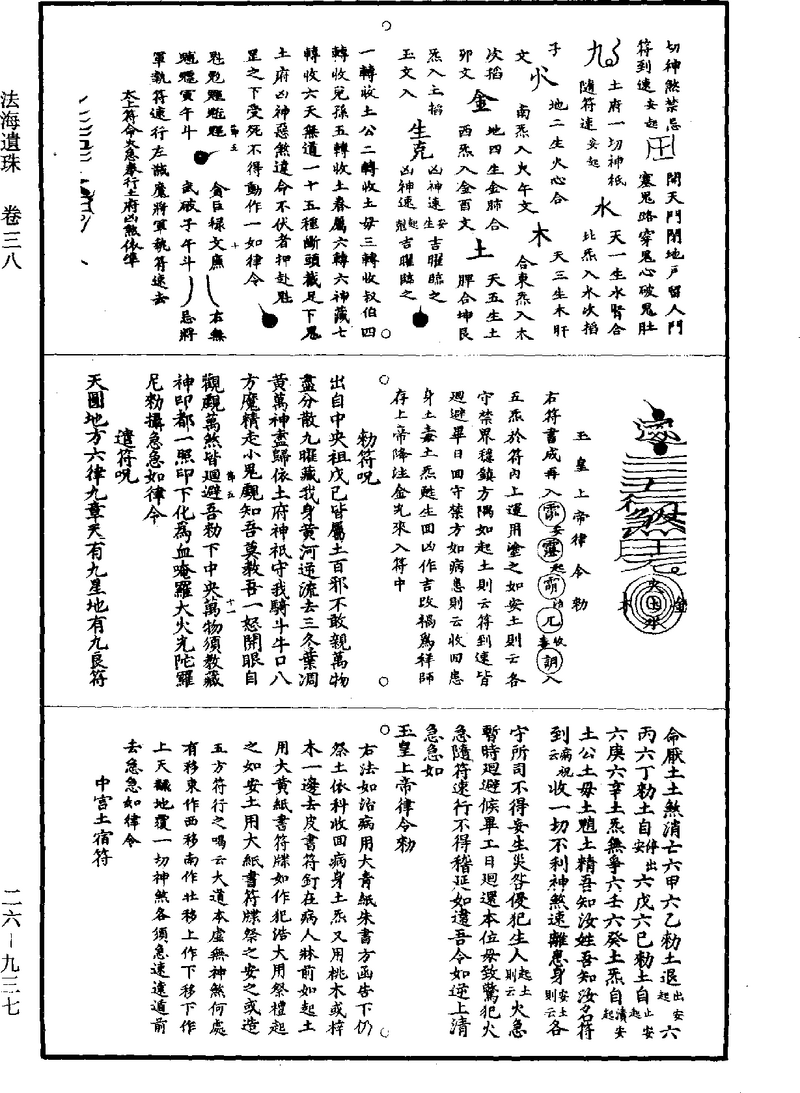 法海遺珠 卷三八
二六－九三七
切神煞禁忌 閉天門閉地戶留人門
符到速 安 起 塞鬼路穿鬼心破鬼肚
土府一切神祇 天一生水腎合
隨符速 安 起 水 北炁入水次搯
子 地二生火心合 天三生木肝
文 火 南炁入火午文 木 合東炁入木
次搯 地四生金肺合 天五生土
卯文 金 西炁入金酉文 土 脾合坤艮
炁入土搯 生 凶神速 安 生 吉曜臨之
玉文入 克 凶神速 起 尅 吉曜臨之
一轉收土公二轉收土母三轉收叔伯四
轉收兒孫五轉收土眷屬六轉六神藏七
轉收六天無道一十五種斷頭截足下鬼
土府凶神惡煞違命不伏者押赴魁
罡之下受死不得動作一如律令
貪巨祿文廉 右無
寅午斗 武破子午斗 忌將
軍執符速行左誡魔將軍執符速去
太上符命火急奉行土府凶煞依準
玉皇上帝律令勑
右符書成再入
五炁於符內上運用塗之如安土則云各
守禁界穩鎮方隅如起土則云符到速皆
迴避畢日回守禁方如病患則云收回患
身土毒土炁甦生回凶作吉改禍為祥師
存上帝降注金光來入符中
勑符呪
出自中央祖戊己皆屬土百邪不敢親萬物
盡分散九曜藏我身黃河逆流去三冬葉凋
黃萬神盡歸依土府神祇守我騎斗牛口八
方魔精走小鬼覷知吾莫教吾一怒開眼自
觀覷萬煞皆迴避吾勑下中央萬物須教藏
神印都一照印下化為血唵羅大火光陀羅
尼勑攝急急如律令
遣符呪
天圓地方六律九章天有九星地有九良符
命厭土土煞消亡六甲六乙勑土退 出安 起 六
丙六丁勑土自 停出 安 六戊六己勑土自 止安 起
六庚六辛土炁無爭六壬六癸土炁自 清安 起
土公土母土䰡土精吾知汝姓吾知汝名符
到 病祝 云 收一切不利神煞速離患身 安土 則云 各
守所司不得妄生災咎侵犯生人 起土 則云 火急
暫時迴避候畢工日迴還本位毋致驚犯火
急隨符速行不得稽延如違吾令如逆上清
急急如
玉皇上帝律令勑
右法如治病用大青紙朱書方函告下仍
祭土依科收回病身土炁又用桃木或梓
木一邊去皮書符釘在病人牀前如起土
用大黃紙書符牒如作犯浩大用祭禮起
之如安土用大紙書符牒祭之安之或造
五方符行之喝云大道本虛無神煞何處
有移東作西移南作北移上作下移下作
上天翻地覆一切神煞各須急速遠遁前
去急急如律令
中宮土宿符